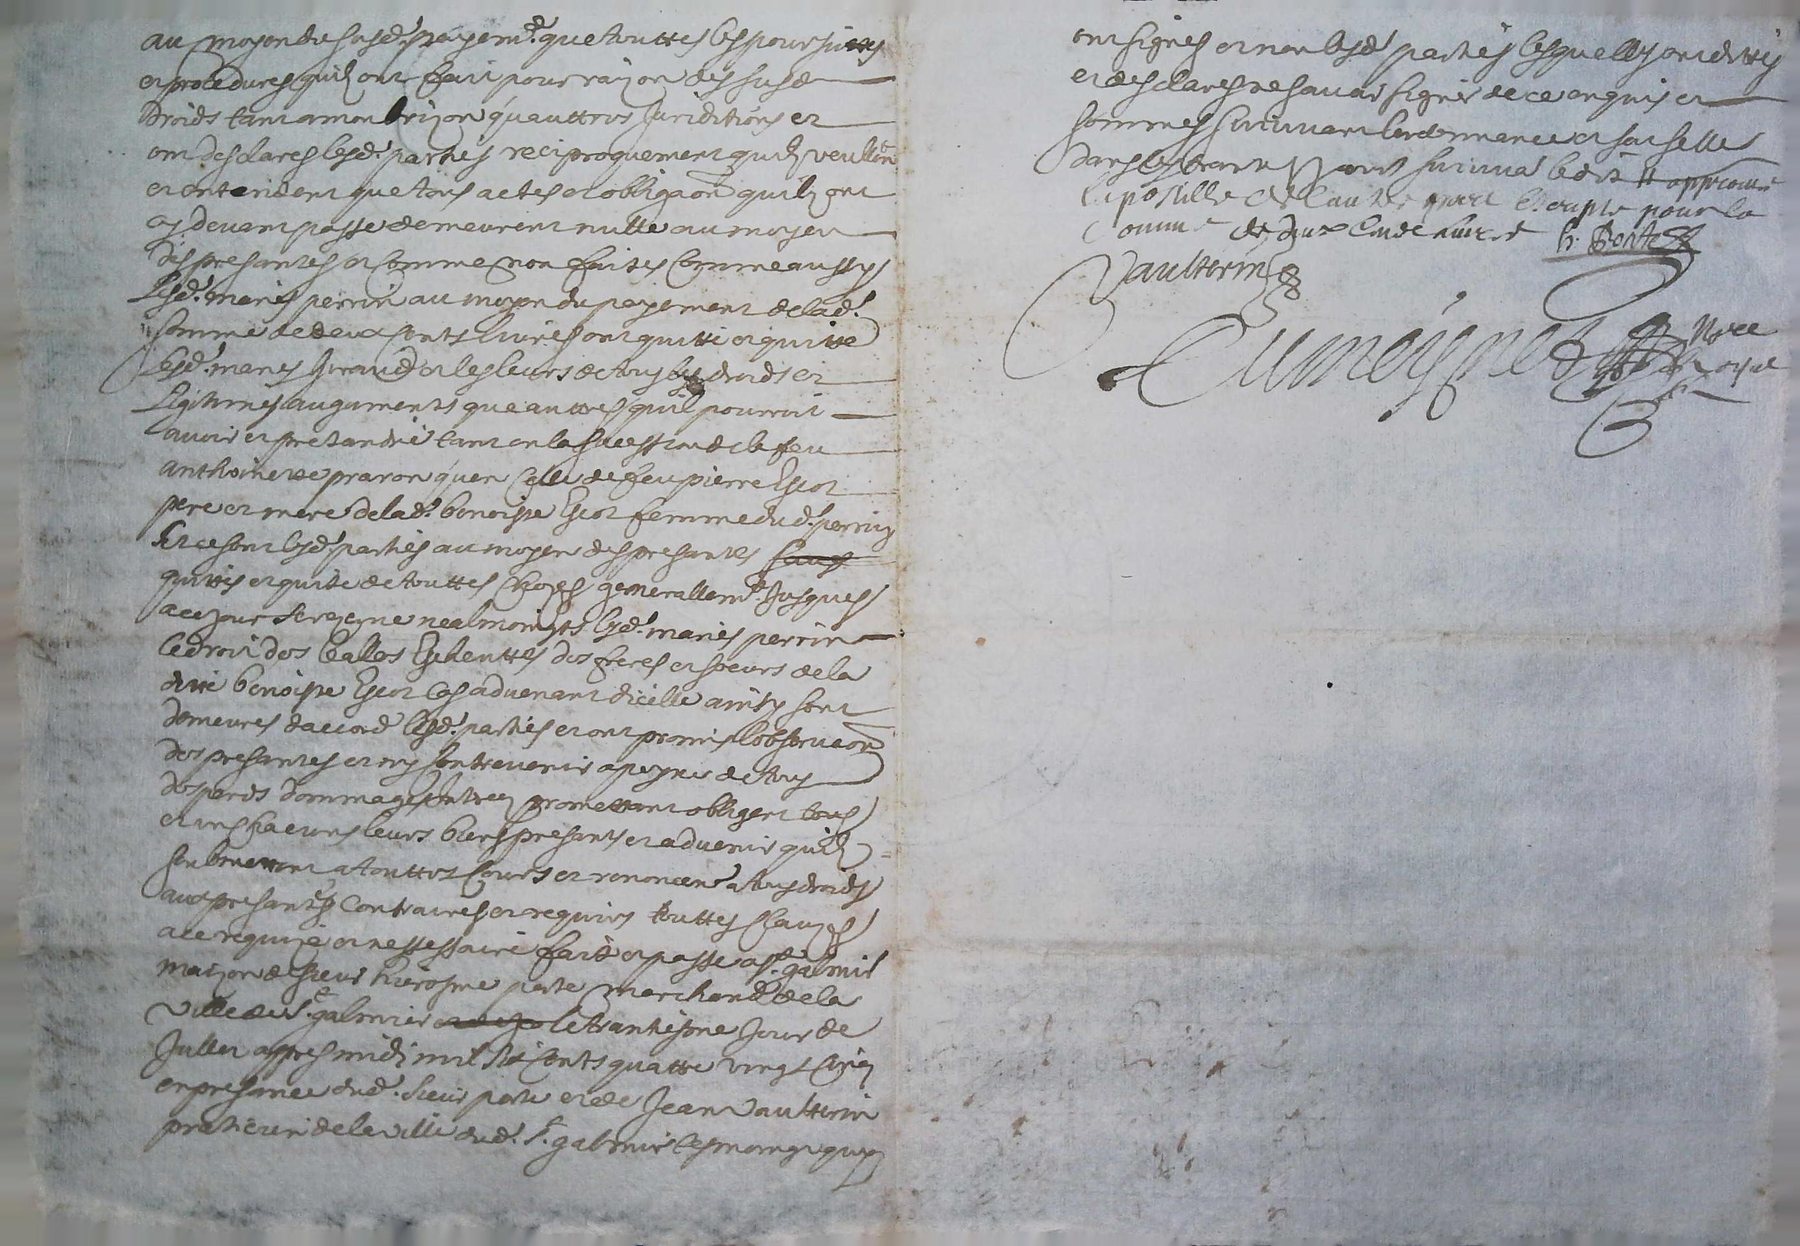 au moyen du susd. payemt. que touttes les poursuittes
et procedures quilz ont fait pour raizon des susd
droits tant a montbrizon qu'auttres Juriditions et
ont desclares lesd. parties reciproquement quilz veullent
et entendent que tous actes et obligaon quilz ont
cy devant passe demeurent nulle au moyen
des presantes et comme non faites comme aussy
lesd. maries perrin au moyen du payement de lad.
somme de deux cents livres ont quitté et quitte
lesd. maries Giraud et les leurs de tous droits et
legitimes augments que auttres quilz pourroit
avoir et pretandre tant en la sucession de la feu
anthoinette praron qu'en celle de feu pierre Escot
pere et mere de lad. benoiste Escot femme dud. perrin
Et ce sont lesd. parties au moyen des presantes
quittés et quitte de touttes chozes generallemt. Jusques
a ce jour se rezerve nealmoingts lesd. maries perrin
le droit des Eschenttes des freres et soeurs de la
ditte benoiste Escot cas advenant dicelle ainsy sont
demeures daccord lesd. parties et ont promis lobservaon
des presantes et ny contrevenir a peynes de tous
despens dommages promettant obligent tous
et uns chacuns leurs biens presants et advenir quilz
soubmettent a touttes cours et renoncent a tous droits
aux presantes contraires et requirs touttes clauzes
a ce requize et nessessaire fait et passe a St. galmier
maizon de sieur hierosme porte marchand de la
ville de St. galmier le trantiesme Jour de
Jullet appres midi mil six cents quattre vingt cinq
en presance dud. sieur porte et de Jean Vaultterin
praticien de la ville dud. St. galmier tesmoings quy
ont signes et non lesd. parties lesquelles ont dittes
et desclares ne savoir signer de ce enquis et
sommes suivant lordonnance et sur selle
dans le temps suivant ledit approuvé
lapostille de lautre part pour la
somme de deux cent livre h. Porte
Vaultterin
Cumeigne Nre
Royal